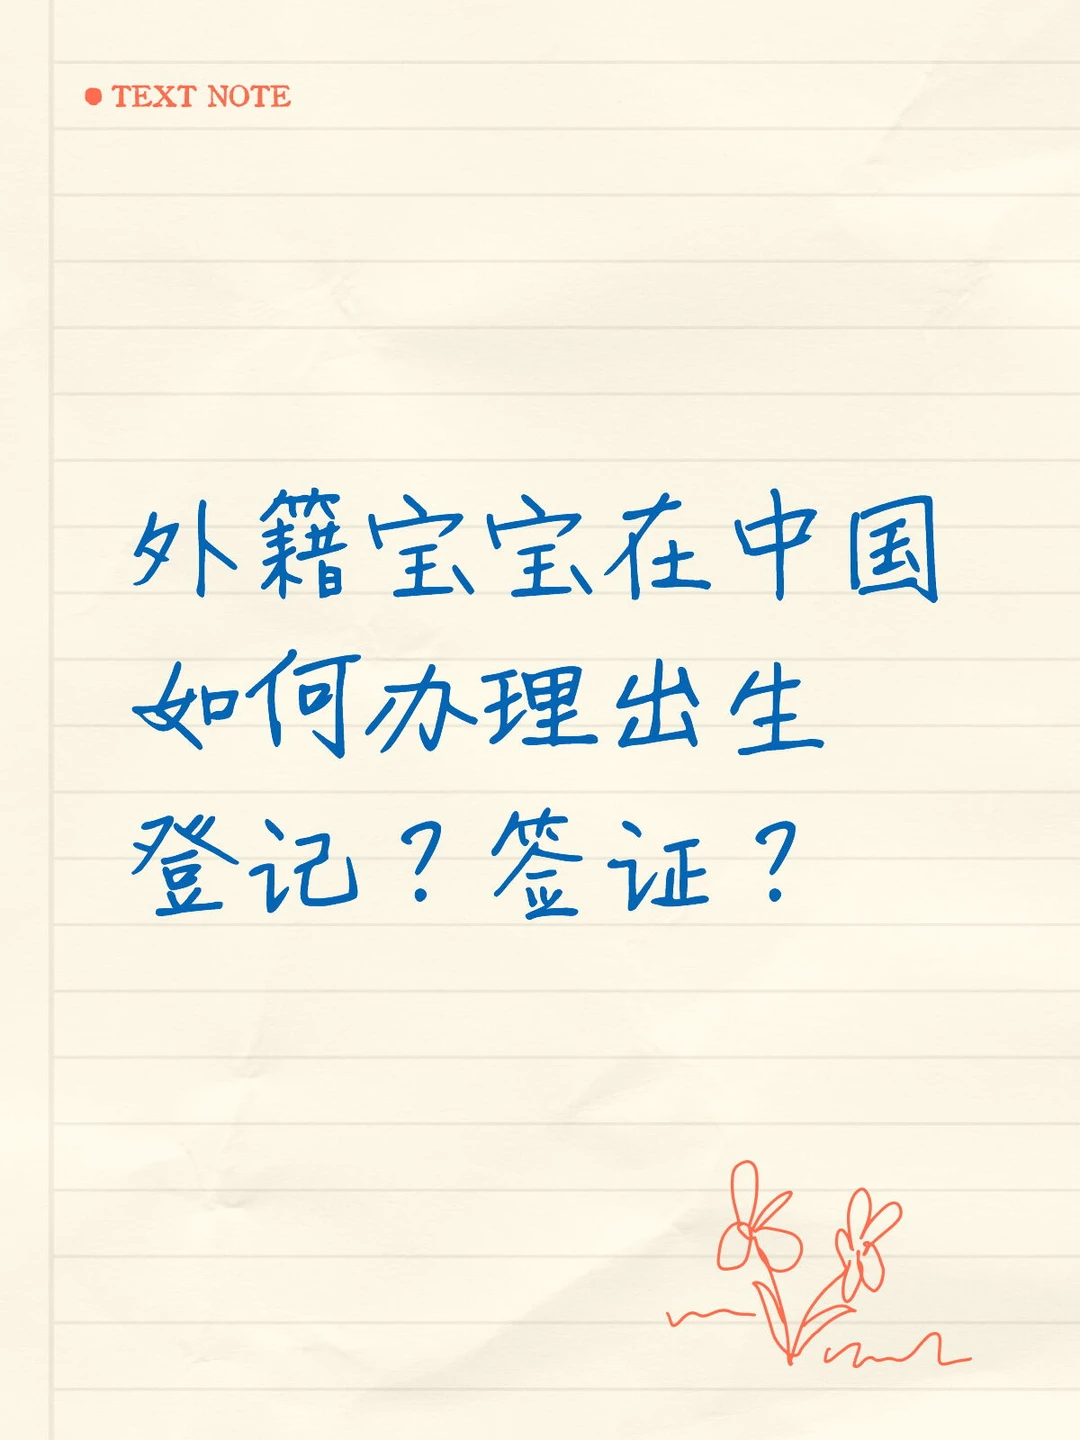 TEXT NOTE
外籍宝宝在中国
如何办理出生
登记？签证？